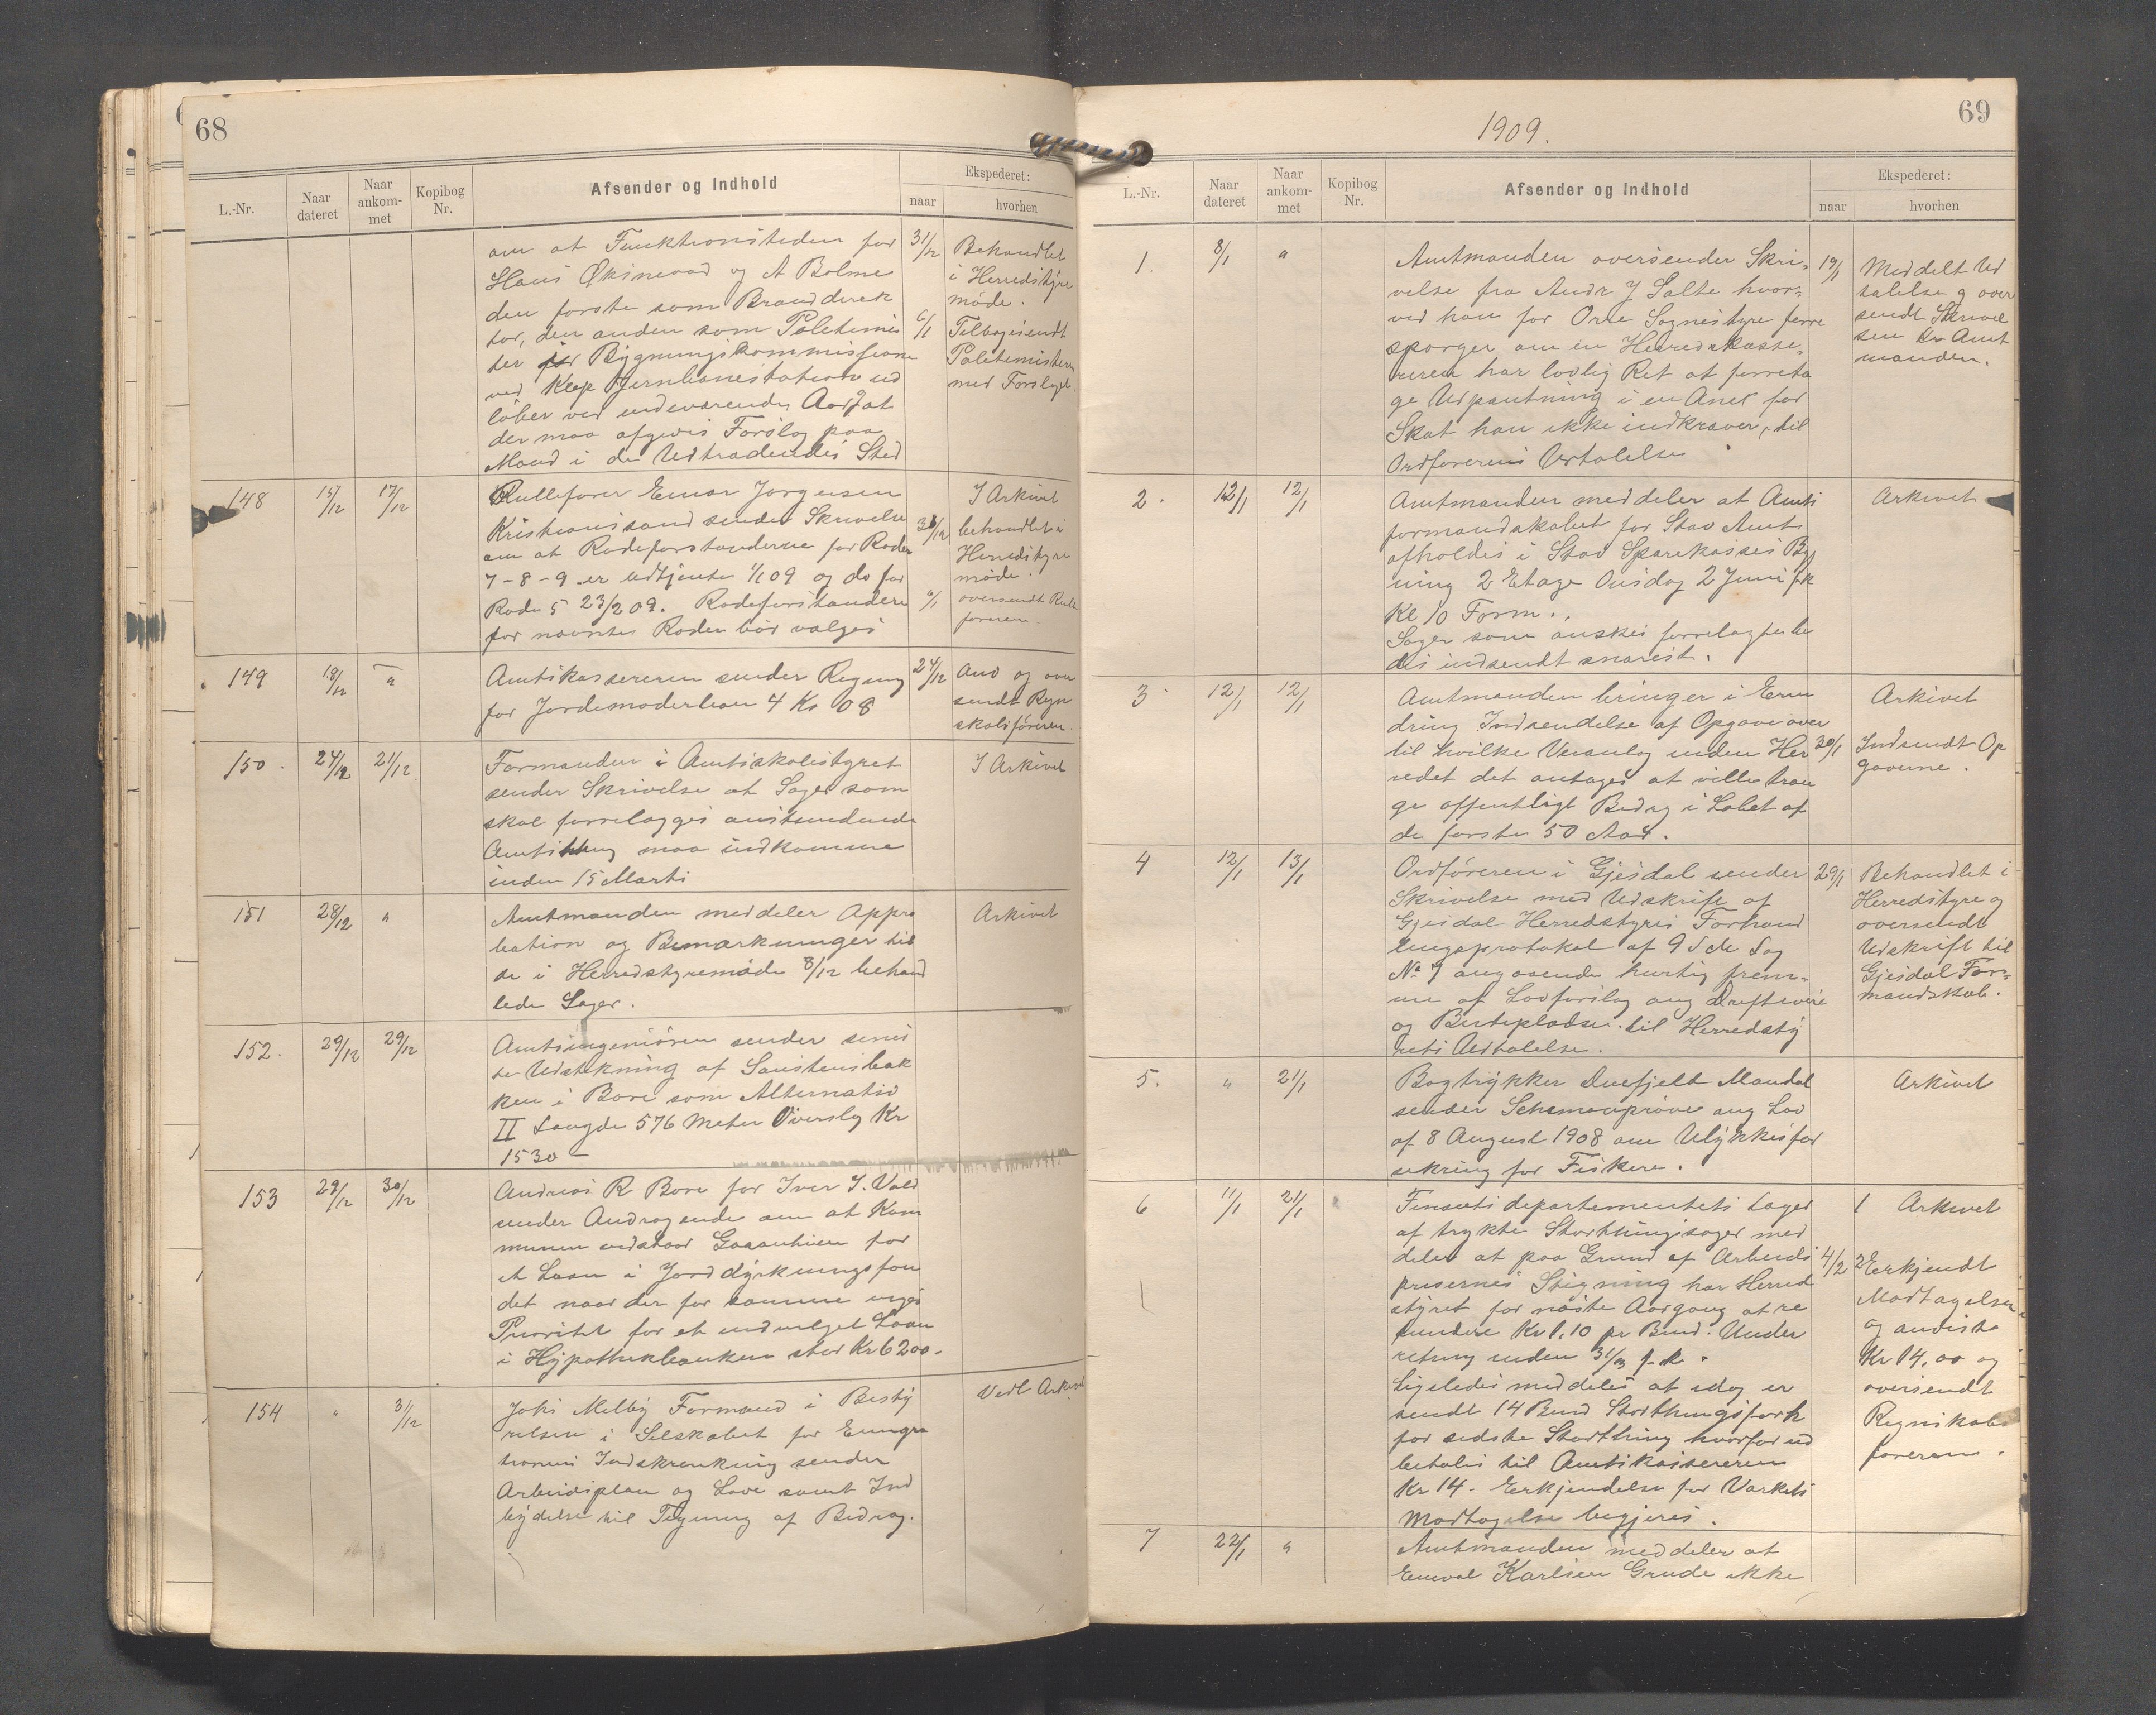 68
L.-Nr.
Naar dateret
Naar ankom-met
Kopibog Nr.
Afsender og Indhold
Ekspederet:
naar
hvorhen
om at Funktionstiden for
Hans Øksnevad og A Bolme
den forste som Branddirek
tør, den anden som Poletimes
ter for Bygningskommissionen
ved Klep Jernbanestation ud
løber ved indeværende Aar
der maa afgives Forslag paa
Mand i de Udtrædendes Sted
31/12 Behandlet
i Herredstyre
møde.
6/1 Tilbagesendt
Politimesteren
med Forslaget.
148 15/12 17/12
Rulleforer Einar Jorgensen
Kristiansand sender Skrivelse
om at Rodeforstanderne for Roder
7-8-9 er udtjente 1/1 09 og do for
Rode 5 23/2 09. Rodeforstandere
for nævnte Roder bør vælges
I Arkivet
31/12 behandlet i
Herredstyre
møde.
6/1 oversendt Rulle
foreren.
149 18/12 "
Amtskassereren sender Regning
for Jordemoderløn 4 Kr 08
24/12 Anv og over
sendt Regn
skabsføreren.
150. 24/12 21/12
Formanden i Amtsskolestyret
sender Skrivelse at Sager som
skal forrelægges anstundende
Amtsthing maa indkomme
inden 15 Marts
I Arkivet
151 28/12 "
Amtmanden meddeler Appro
bation og Bemærkninger til
de i Herredstyremøde 8/12 behand
lede Sager.
Arkivet
152. 29/12 29/12
Amtsingeniøren sender senes
te Udstikning af
ken i Bore som Alternativ
II Længde 576 Meter Overslag Kr
1530 -
153 29/12 30/12
Andreas R Bore for Iver I. Vold
sender Andragende om at Kom
munen vedstaar Garantien for
et Laan i Jorddyrkningsfon
det naar der for samme viges
Prioritet for et Laan
i Hypothekbanken stor Kr 6200.-
154 " 31/12
Johs Melby Formand i Besty
relsen i Selskabet for Emigra
tionens Indskrenkning sender
Arbeidsplan og Love samt Ind
bydelse til Tegning af Bidrag.
Vedl Arkivet
69
1909.
L.-Nr.
Naar dateret
Naar ankom-met
Kopibog Nr.
Afsender og Indhold
Ekspederet:
naar
hvorhen
1. 8/1 "
Amtmanden oversender Skri-
velse fra Andr J Salte hvor-
ved han for Orre Sognestyre forre
sporger om en Herredskasse-
reren har lovlig Ret at forreta
ge Udpantning i en Anet for
Skat han ikke indkræver, til
Ordførerens Udtalelse
19/1 Meddelt Ud
talelse og over
sendt Skrivel
sen Hr Amt
manden.
2. 12/1 12/1
Amtmanden meddeler at Amts
formandskabet for Stav Amt
afholdes i Stav Sparekasses Byg
ning 2 Etage Onsdag 2 Juni f.k
Kl 10 Form.
Sager som ønskes forrelagt be
des indsendt snarest.
Arkivet
3. 12/1 12/1
Amtmanden bringer i Erin
dring Indsendelse af Opgave over
til hvilke Veranlæg inden Her
redet det antages at ville træn
ge offentligt Bidrag i Løbet af
de forste 50 Aar.
Arkivet
30/1 Indsendt Op
gaverne.
4 12/1 13/1
Ordføreren i Gjesdal sender
Skrivelse med Udskrift af
Gjesdal Herredstyres Forhand
lingsprotokol af 9 d M Sag
No 7 angaaende hurtig frem-
me af Lovforslag ang Drifteveie
og Beitepladse. til Herredsty
rets Udtalelse.
29/1 Behandlet i
Herredstyre og
oversendt
Udskrift til
Gjesdal For-
mandskab.
5. " 21/1
Bogtrykker Duefjeld Mandal
sender Schemaprøve ang Lov
af 8 August 1908 om Ulykkesfor
sekring for Fiskere.
Arkivet
6 11/1 21/1
Finsetsdepartementets Lager
af trykte Storthingssager med
deler at paa Grund af Arbeids
prisernes Stigning har Herred
styret for næste Aargang at re
fundere Kr 1,10 pr Bind. Under
retning inden 31/3 f.k.
Ligeledes meddeles at idag er
sendt 14 Bind Storthingsforh
for sidste Storthing hvorfor ud
betales til Amtskassereren
Kr 14.- Erkjendelse for Værkets
Modtagelse begjeres.
1 Arkivet
4/2 2 Erkjendt
Modtagelsen
og anviste
Kr 14,00 og
oversendt
Regnskabs
føreren.
7 22/1 "
Amtmanden meddeler at
Enevald Karlsen Grude ikke